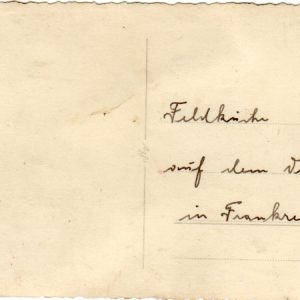 Feldküche
auf dem V
in Frankre